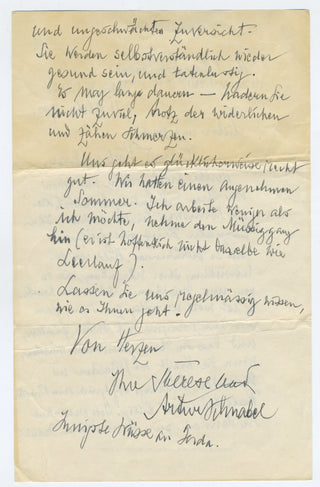 und ungeschwächten Zuversicht.
Sie werden selbstverständlich wieder
gesund sein, und tatenlustig.
Es mag lange dauern — hadern Sie
nicht zuviel, trotz der widerlichen
und zähen Schmerzen.
Uns geht es glücklicherweise recht
gut. Wir hatten einen angenehmen
Sommer. Ich arbeite weniger als
ich möchte, nehme den Müssiggang
hin (er ist hoffentlich nicht dasselbe wie
Leerlauf).
Lassen Sie uns regelmässig wissen,
wie es Ihnen geht.
Von Herzen
Ihre Therese und
Artur Schnabel
Innigste Grüsse an